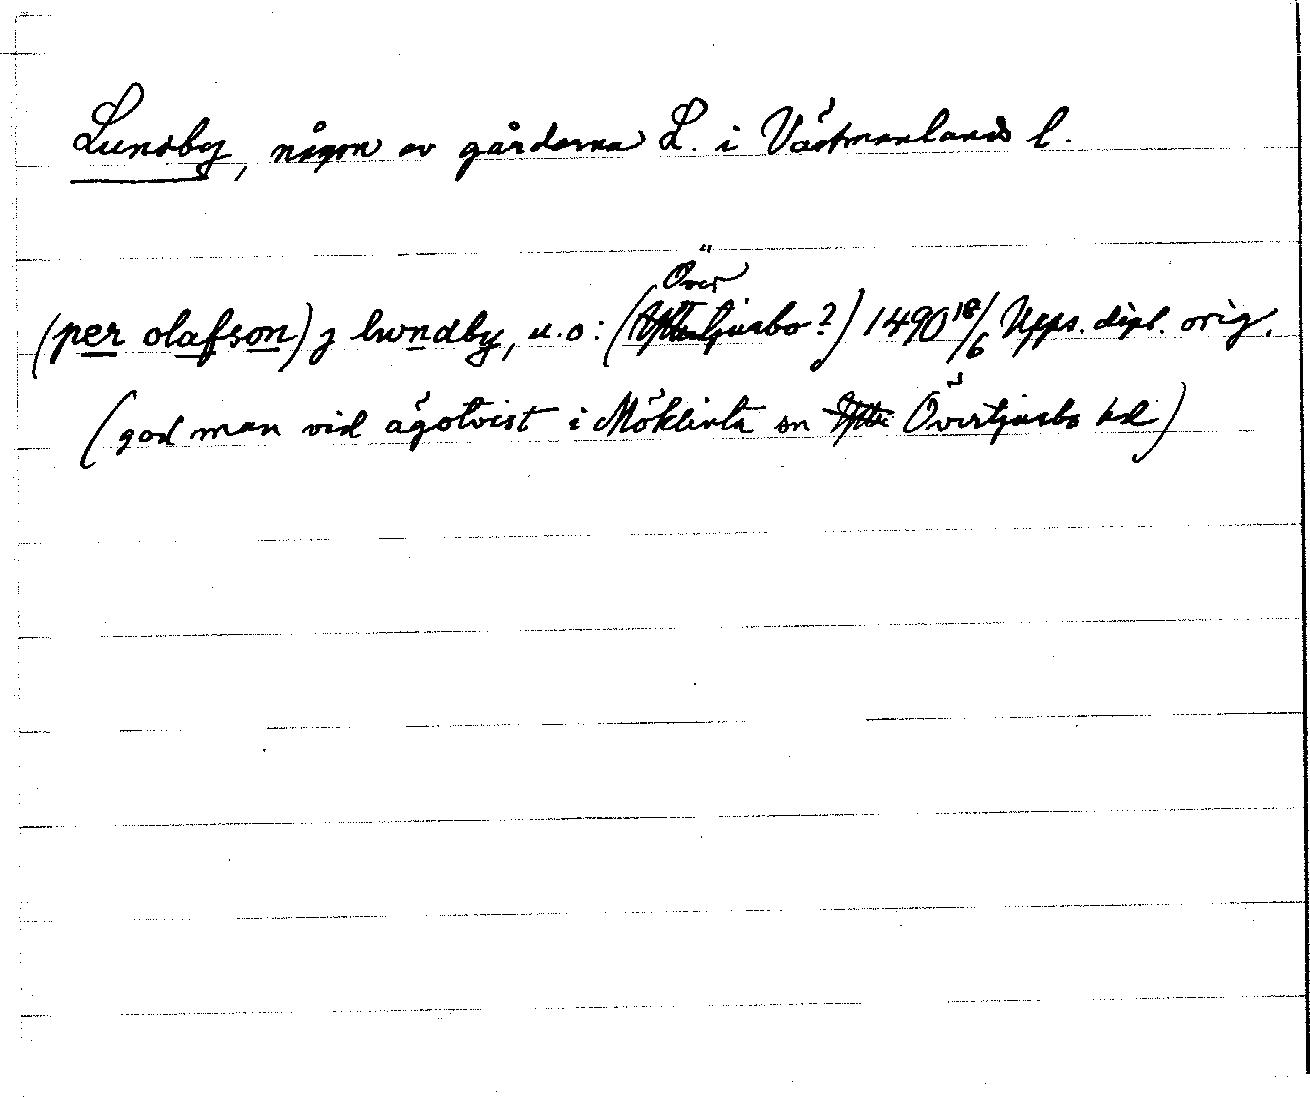 Lundby, någon av gårdarna L. i Västmanlands l.
(per olafson) j lwndby, u.o: (Övertjurbo?) 1490 18/6 Upps. dipl. orig.
(god man vid ägotvist i Möklinta sn Övertjurbo hd)